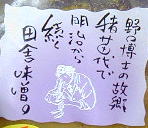 野口博士の故郷
猪苗代で
明治から
続く
田舎味噌の